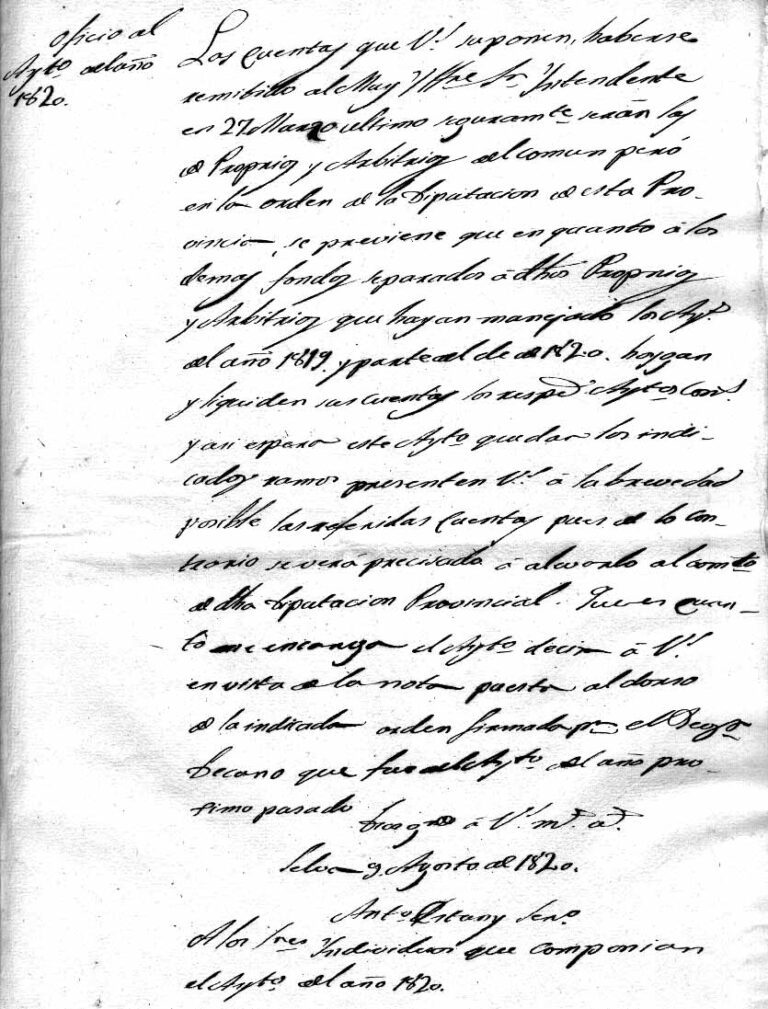 oficio al
Ayto. del año
1820.
Las cuentas que Vs. suponen, haberse
remitido al Muy Iltre Sr. Intendente
en 27 Marzo ultimo seguramte. serán las
de Proprios y Arbitrios del comun peró
en la orden de la Diputacion de esta Pro-
vincia, se previene que en quanto á los
demas fondos separados á dhos Proprios
y Arbitrios que hayan manejado los Ayts.
del año 1819. y parte del de 1820. hoygan
y liquiden sus cuentas los respects. Aytos Cons.
y asi espera este Ayto que dar los indi-
cados ramos presenten Vs. á la brevedad
posible las referidas cuentas pues de lo con-
trario se verá precisado á
de dha Diputacion Provincial. Que es quan-
to me encarga el Ayto decir á Vs.
en vista de la nota puesta al dorso
de la indicada orden firmada pr. el Regr.
Decano que fue del Ayto. del año pro-
simo pasado
Dios gue á Vs. ms. as.
Selva 9 Agosto de 1820.
Anto. Estany Seno.
A los Sres Individuos que componian
el Ayto. del año 1820.